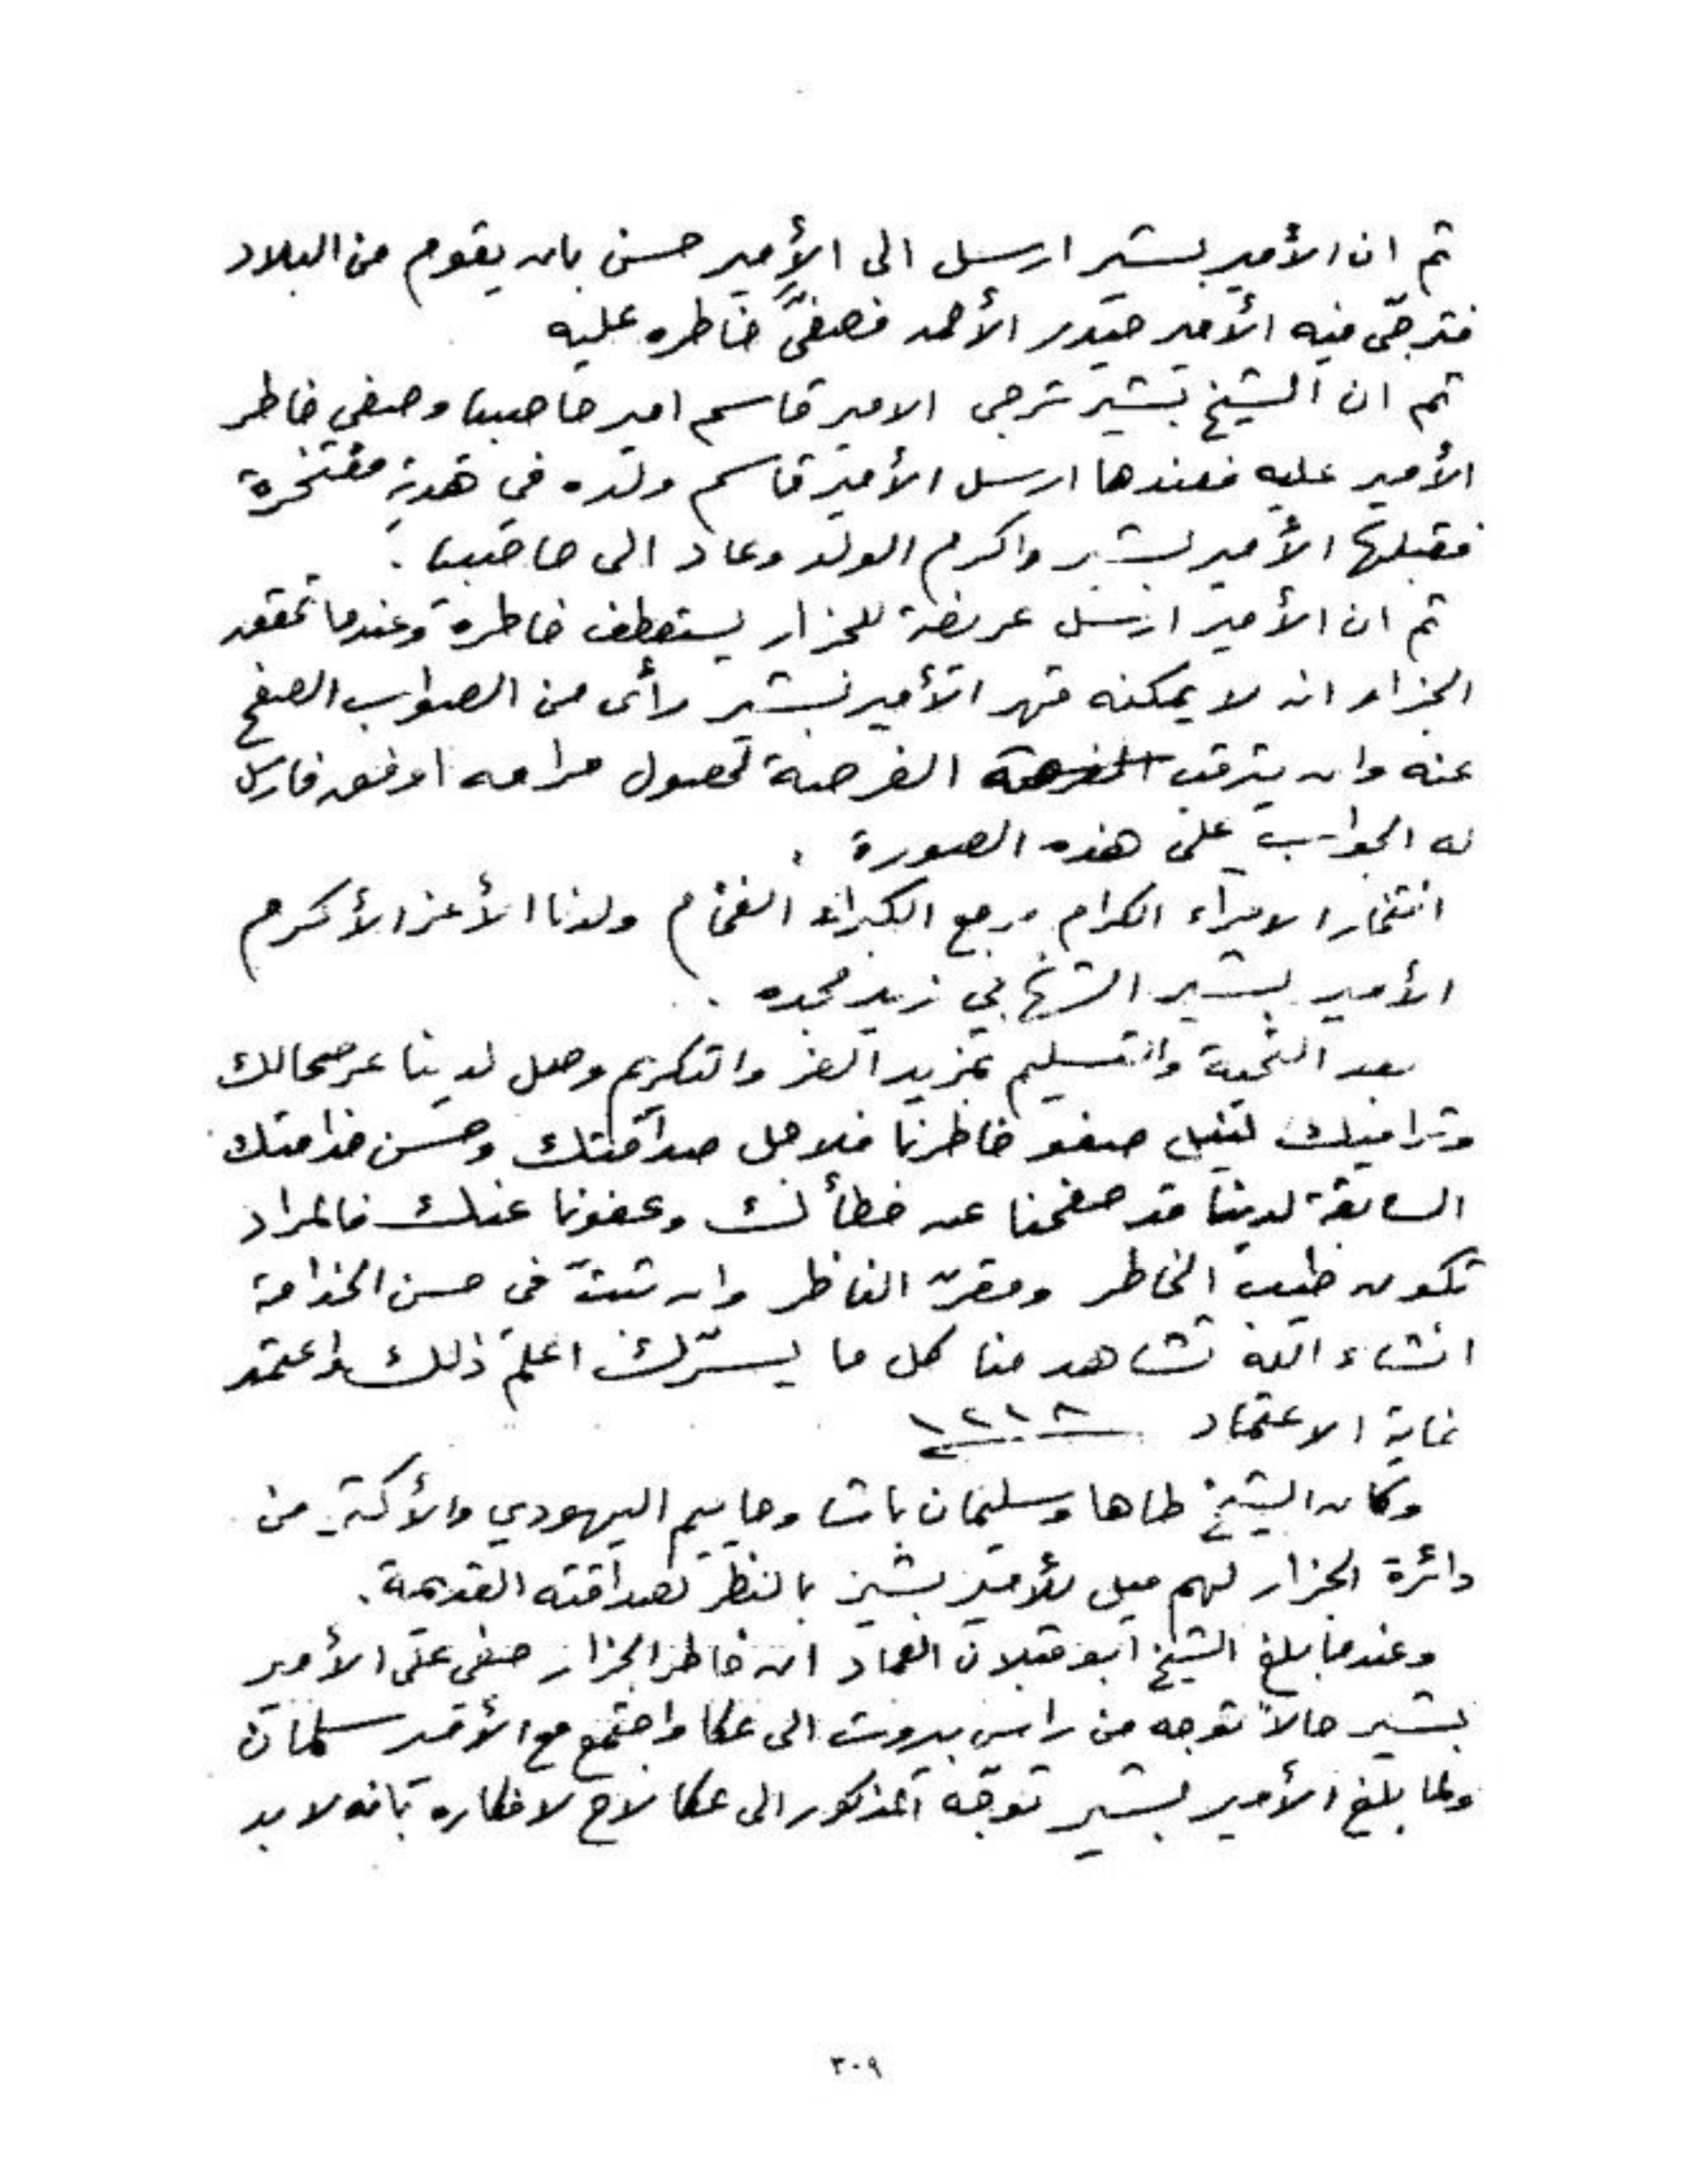 ثم ان الأمير بشير ارسل الى الأمير حسن بان يقوم من البلاد
فترجّى فيه الأمير حيدر الأحمد فصفىَّ خاطره عليه
ثم ان الشيخ بشير ترجى الامير قاسم امير حاصبيا وصفي خاطر
الأمير عليه فعندها ارسل الأمير قاسم ولده في هدية مفتخرة
فقبلها الأمير بشير واكرم الولد وعاد الى حاصبيا .
ثم ان الأمير ارسل عريضة للجزار يستعطف خاطره وعندما تحقق
الجزار انه لا يمكنه قهر الأمير بشير رأى من الصواب الصفح
عنه وان يترقب الفرصة لحصول مرامه اوفق فارسل
له الجواب على هذه الصورة .
افتخار الامراء الكرام مرجع الكبراء الفخام ولدنا الأعز الأكرم
الأمير بشير الشهابي زيد مجده .
بعد التحية والتسليم بمزيد العز والتكريم وصل لدينا عرضحالك
وتراميك لنيل صفو خاطرنا فلاجل صداقتك وحسن خدامتك
السابقة لدينا قد صفحنا عن خطأك وعفونا عنك فالمراد
تكون طيب الخاطر ومقرّ الناظر وان تثبت في حسن الخدامة
انشاء الله تشاهد منا كل ما يسرّك اعلم ذلك واعتمد
غاية الاعتماد ١٢١٨
وكان الشيخ طاها وسليمان باشا وحاييم اليهودي والأكثر من
دائرة الجزار لهم ميل للأمير بشير بالنظر لصداقته القديمة .
وعندما بلغ الشيخ ابو قبلان العماد ان خاطر الجزار صفى على الأمير
بشير حالاً توجه من راس بيروت الى عكا واجتمع مع الأمير سلمان
ولما بلغ الأمير بشير توجّه المذكور الى عكا لاح لافكاره بانه لا بد
٣٠٩